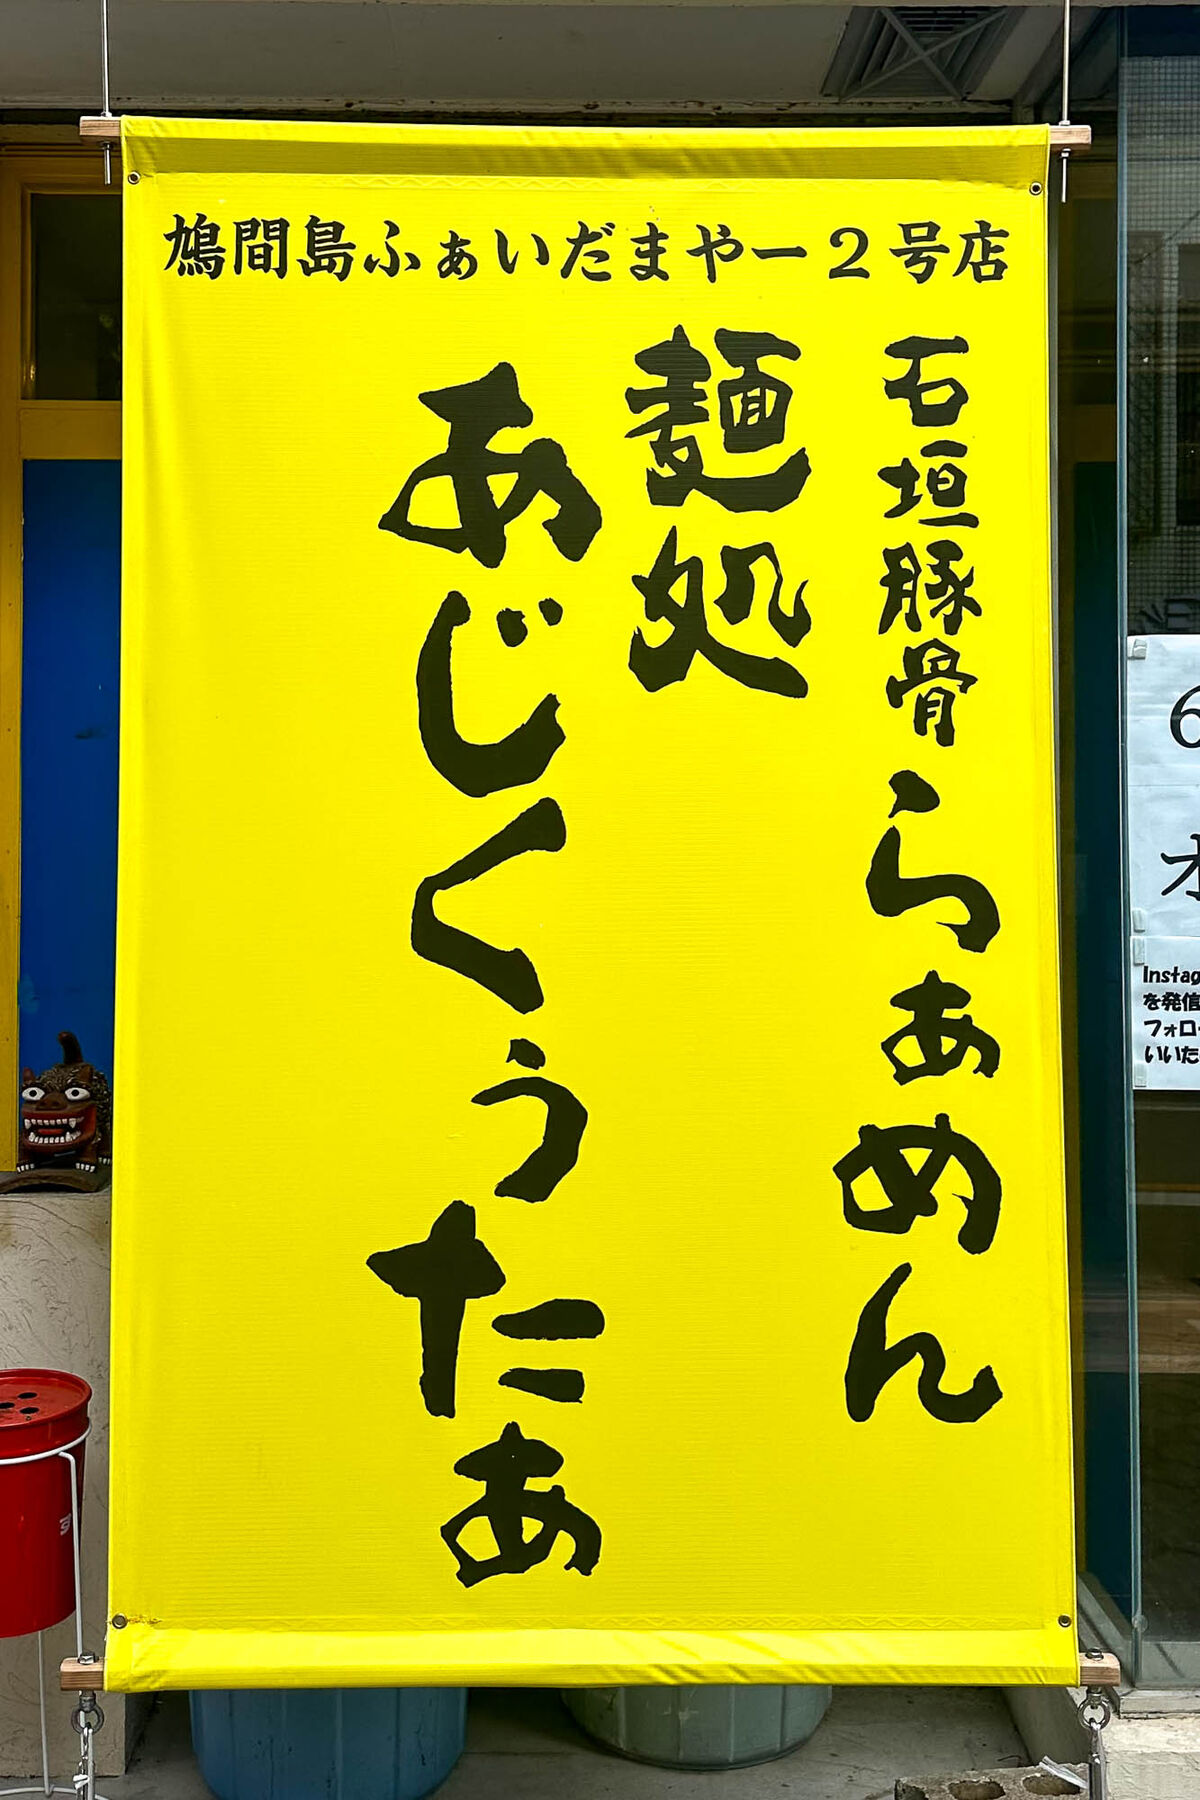 鳩間島ふぁいだまやー２号店
石垣豚骨らぁめん
麺処
あじくぅたぁ
6
Instag
を発信
フォロー
いいた